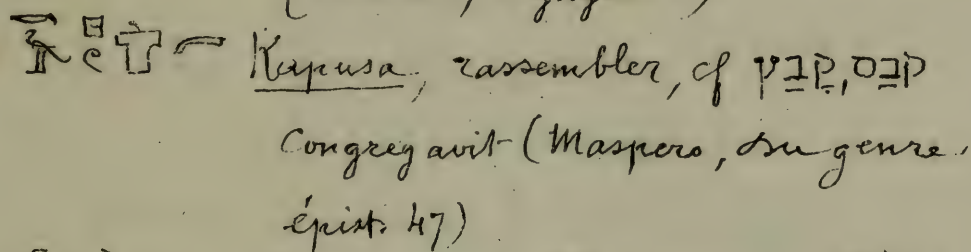 Kapusa, rassembler, cf קבץ, קבס
Congregavit (Maspero, du genre
épist. 47)